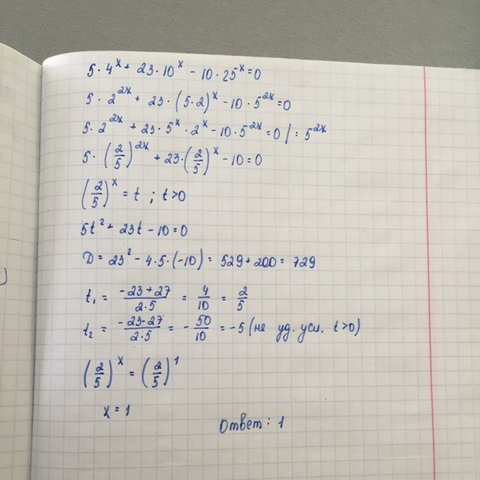 5·4^x + 23·10^x − 10·25^x = 0
5·2^{2x} + 23·(5·2)^x − 10·5^{2x} = 0
5·2^{2x} + 23·5^x·2^x − 10·5^{2x} = 0 | : 5^{2x}
5·(2/5)^{2x} + 23·(2/5)^x − 10 = 0
(2/5)^x = t ; t>0
5t² + 23t − 10 = 0
D = 23² − 4·5·(−10) = 529 + 200 = 729
t₁ = (−23+27)/(2·5) = 4/10 = 2/5
t₂ = (−23−27)/(2·5) = −50/10 = −5 (не уд. усл. t>0)
(2/5)^x = (2/5)^1
x = 1
Ответ: 1